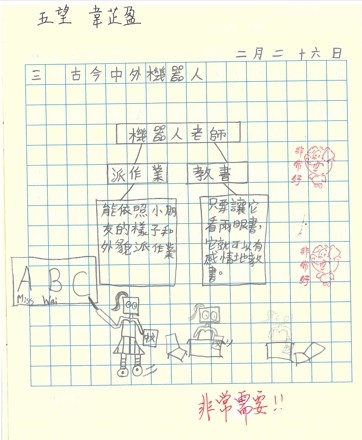 五望 韋芷盈
二月二十六日
三 古今中外機器人
機器人老師
派作業
教書
能依照小朋
友的樣子和
外貌派作業
只要讓它
看兩眼書，
它就可以有
感情地教
書。
非常好
非常好
A B C
Miss Wai
非常需要!!